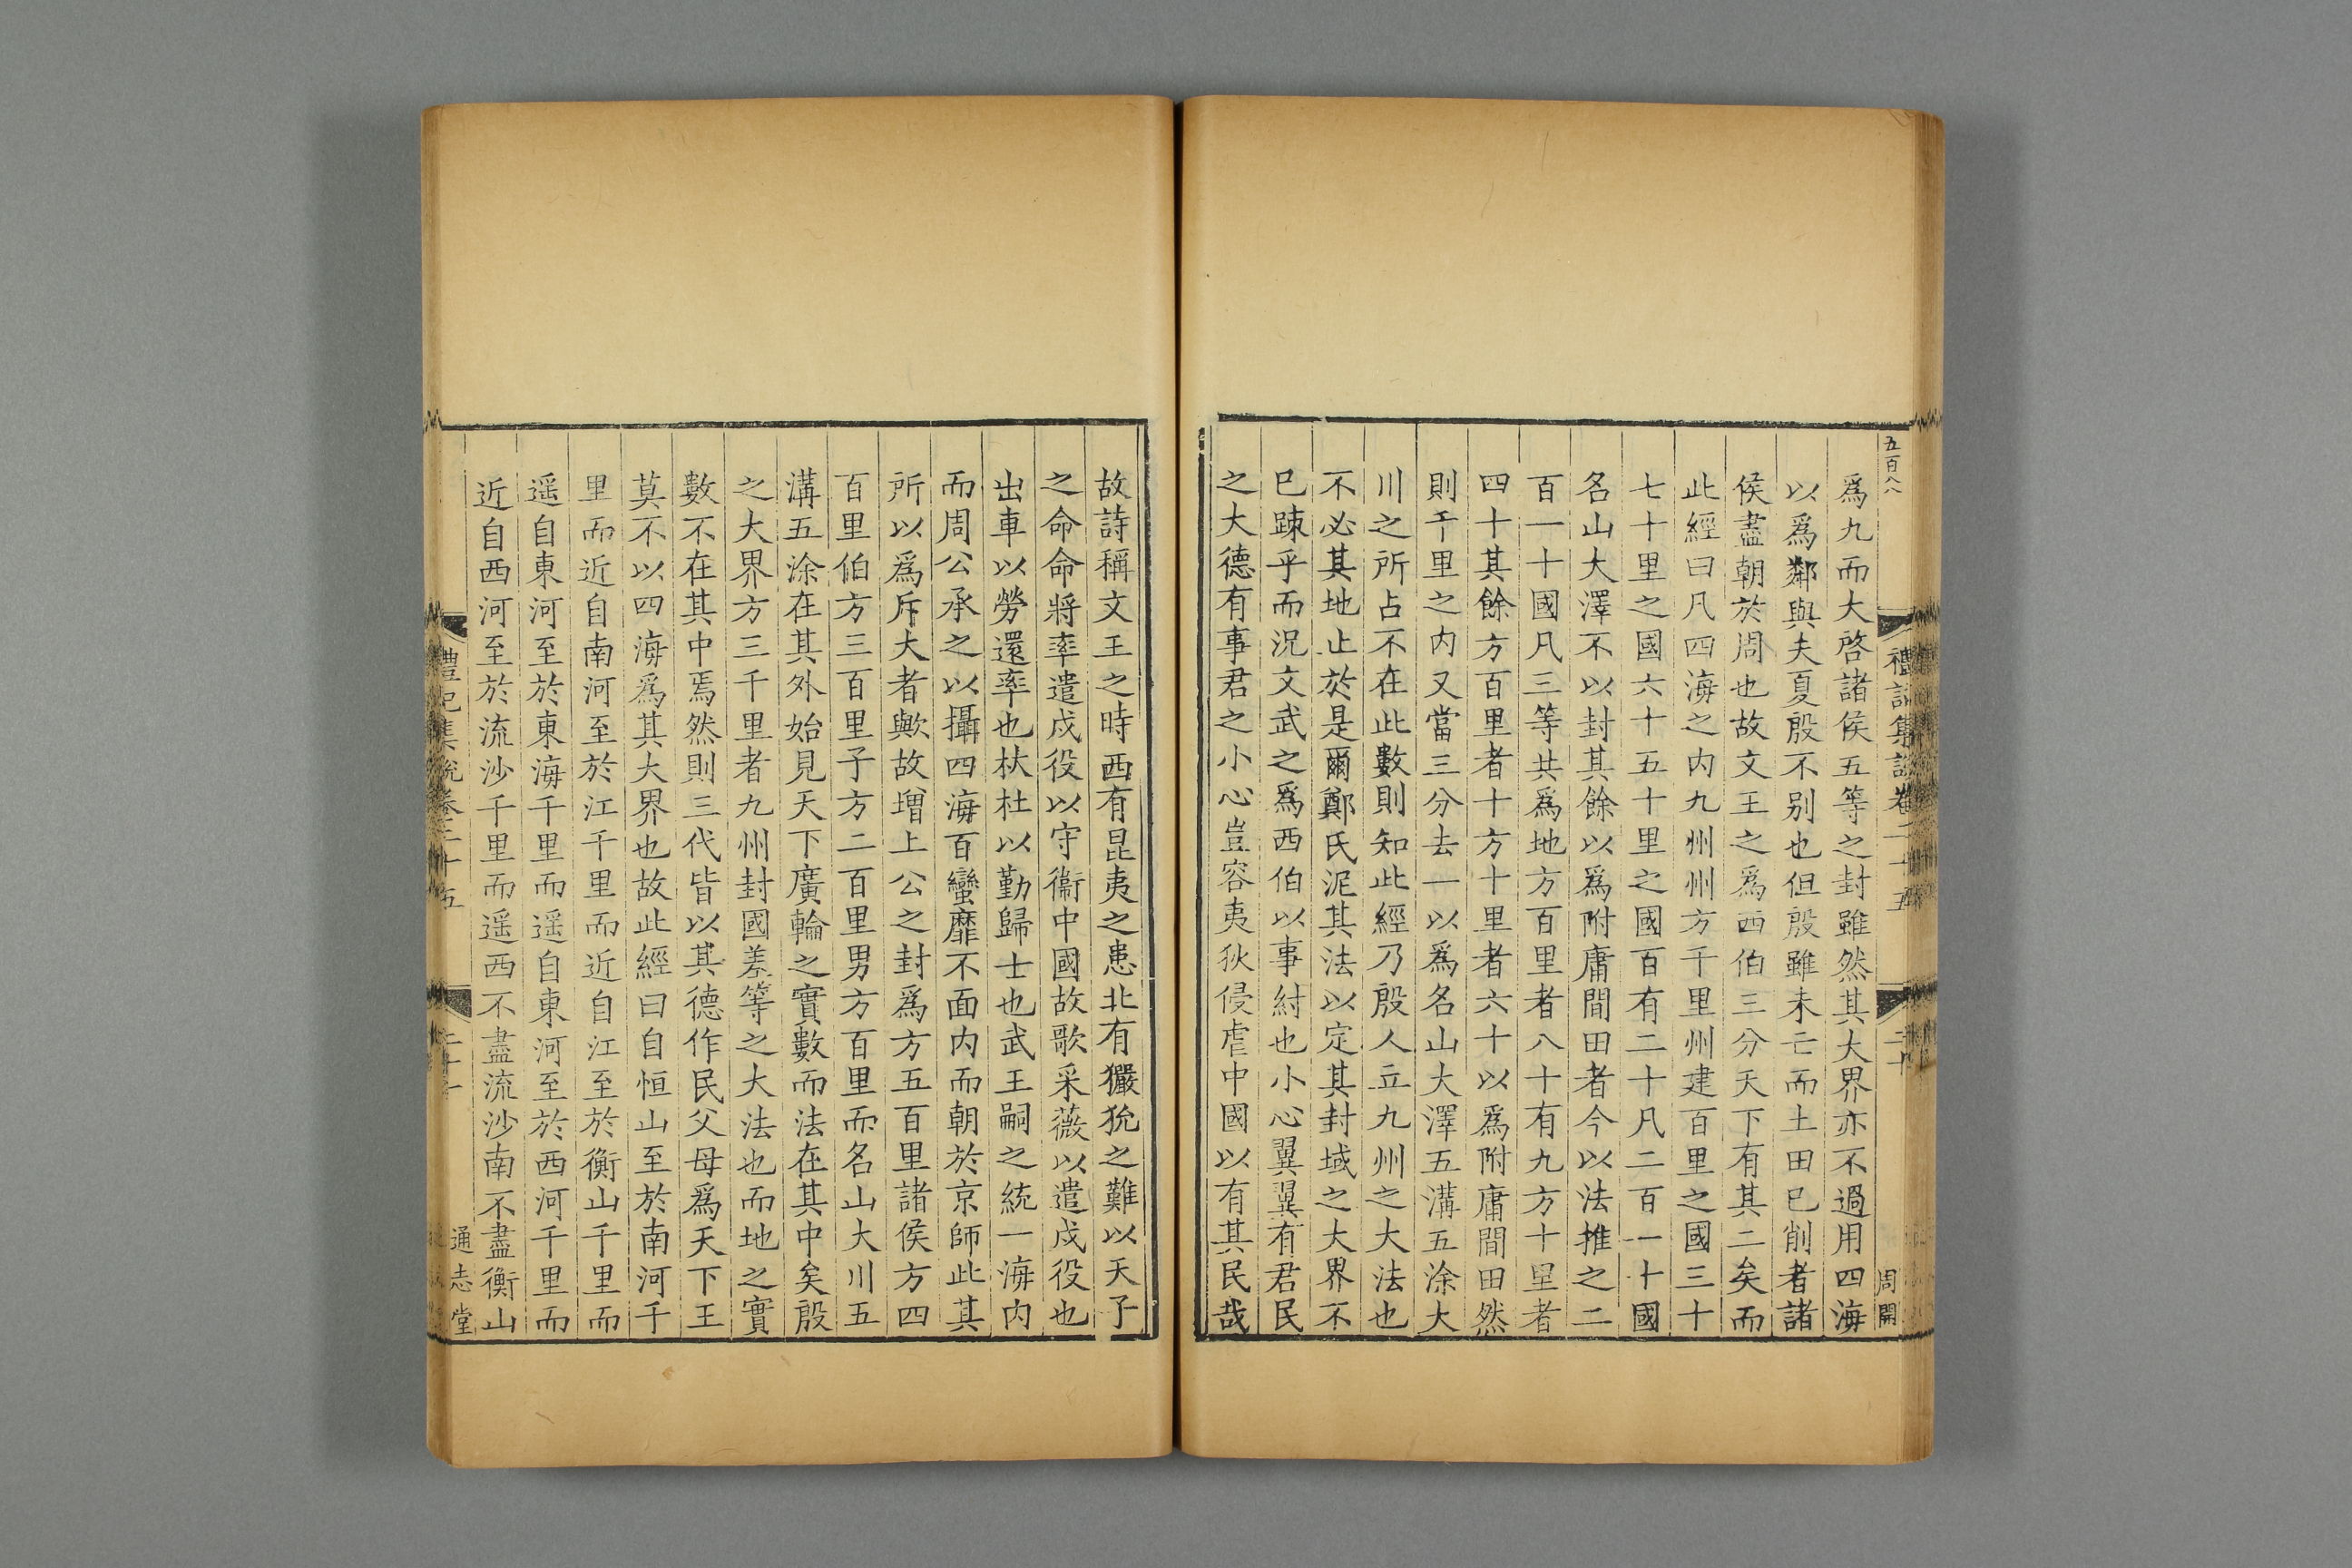 五百八八
禮記集說卷二十五
二十
周開
爲九而大啓諸侯五等之封雖然其大界亦不過用四海
以爲鄰與夫夏殷不别也但殷雖未亡而土田巳削者諸
侯盡朝於周也故文王之爲西伯三分天下有其二矣而
此經曰凡四海之内九州州方千里州建百里之國三十
七十里之國六十五十里之國百有二十凡二百一十國
名山大澤不以封其餘以爲附庸間田者今以法推之二
百一十國凡三等共爲地方百里者八十有九方十里者
四十其餘方百里者十方十里者六十以爲附庸間田然
則千里之内又當三分去一以爲名山大澤五溝五涂大
川之所占不在此數則知此經乃殷人立九州之大法也
不必其地止於是爾鄭氏泥其法以定其封域之大界不
巳踈乎而況文武之爲西伯以事紂也小心翼翼有君民
之大德有事君之小心豈容夷狄侵虐中國以有其民哉
故詩稱文王之時西有昆夷之患北有玁狁之難以天子
之命命將率遣戍役以守衞中國故歌采薇以遣戍役也
出車以勞還率也杕杜以勤歸士也武王嗣之統一海内
而周公承之以攝四海百蠻靡不面内而朝於京師此其
所以爲斥大者歟故增上公之封爲方五百里諸侯方四
百里伯方三百里子方二百里男方百里而名山大川五
溝五涂在其外始見天下廣輪之實數而法在其中矣殷
之大界方三千里者九州封國差等之大法也而地之實
數不在其中焉然則三代皆以其德作民父母爲天下王
莫不以四海爲其大界也故此經曰自恒山至於南河千
里而近自南河至於江千里而近自江至於衡山千里而
遥自東河至於東海千里而遥自東河至於西河千里而
近自西河至於流沙千里而遥西不盡流沙南不盡衡山
禮記集說卷二十五
通志堂